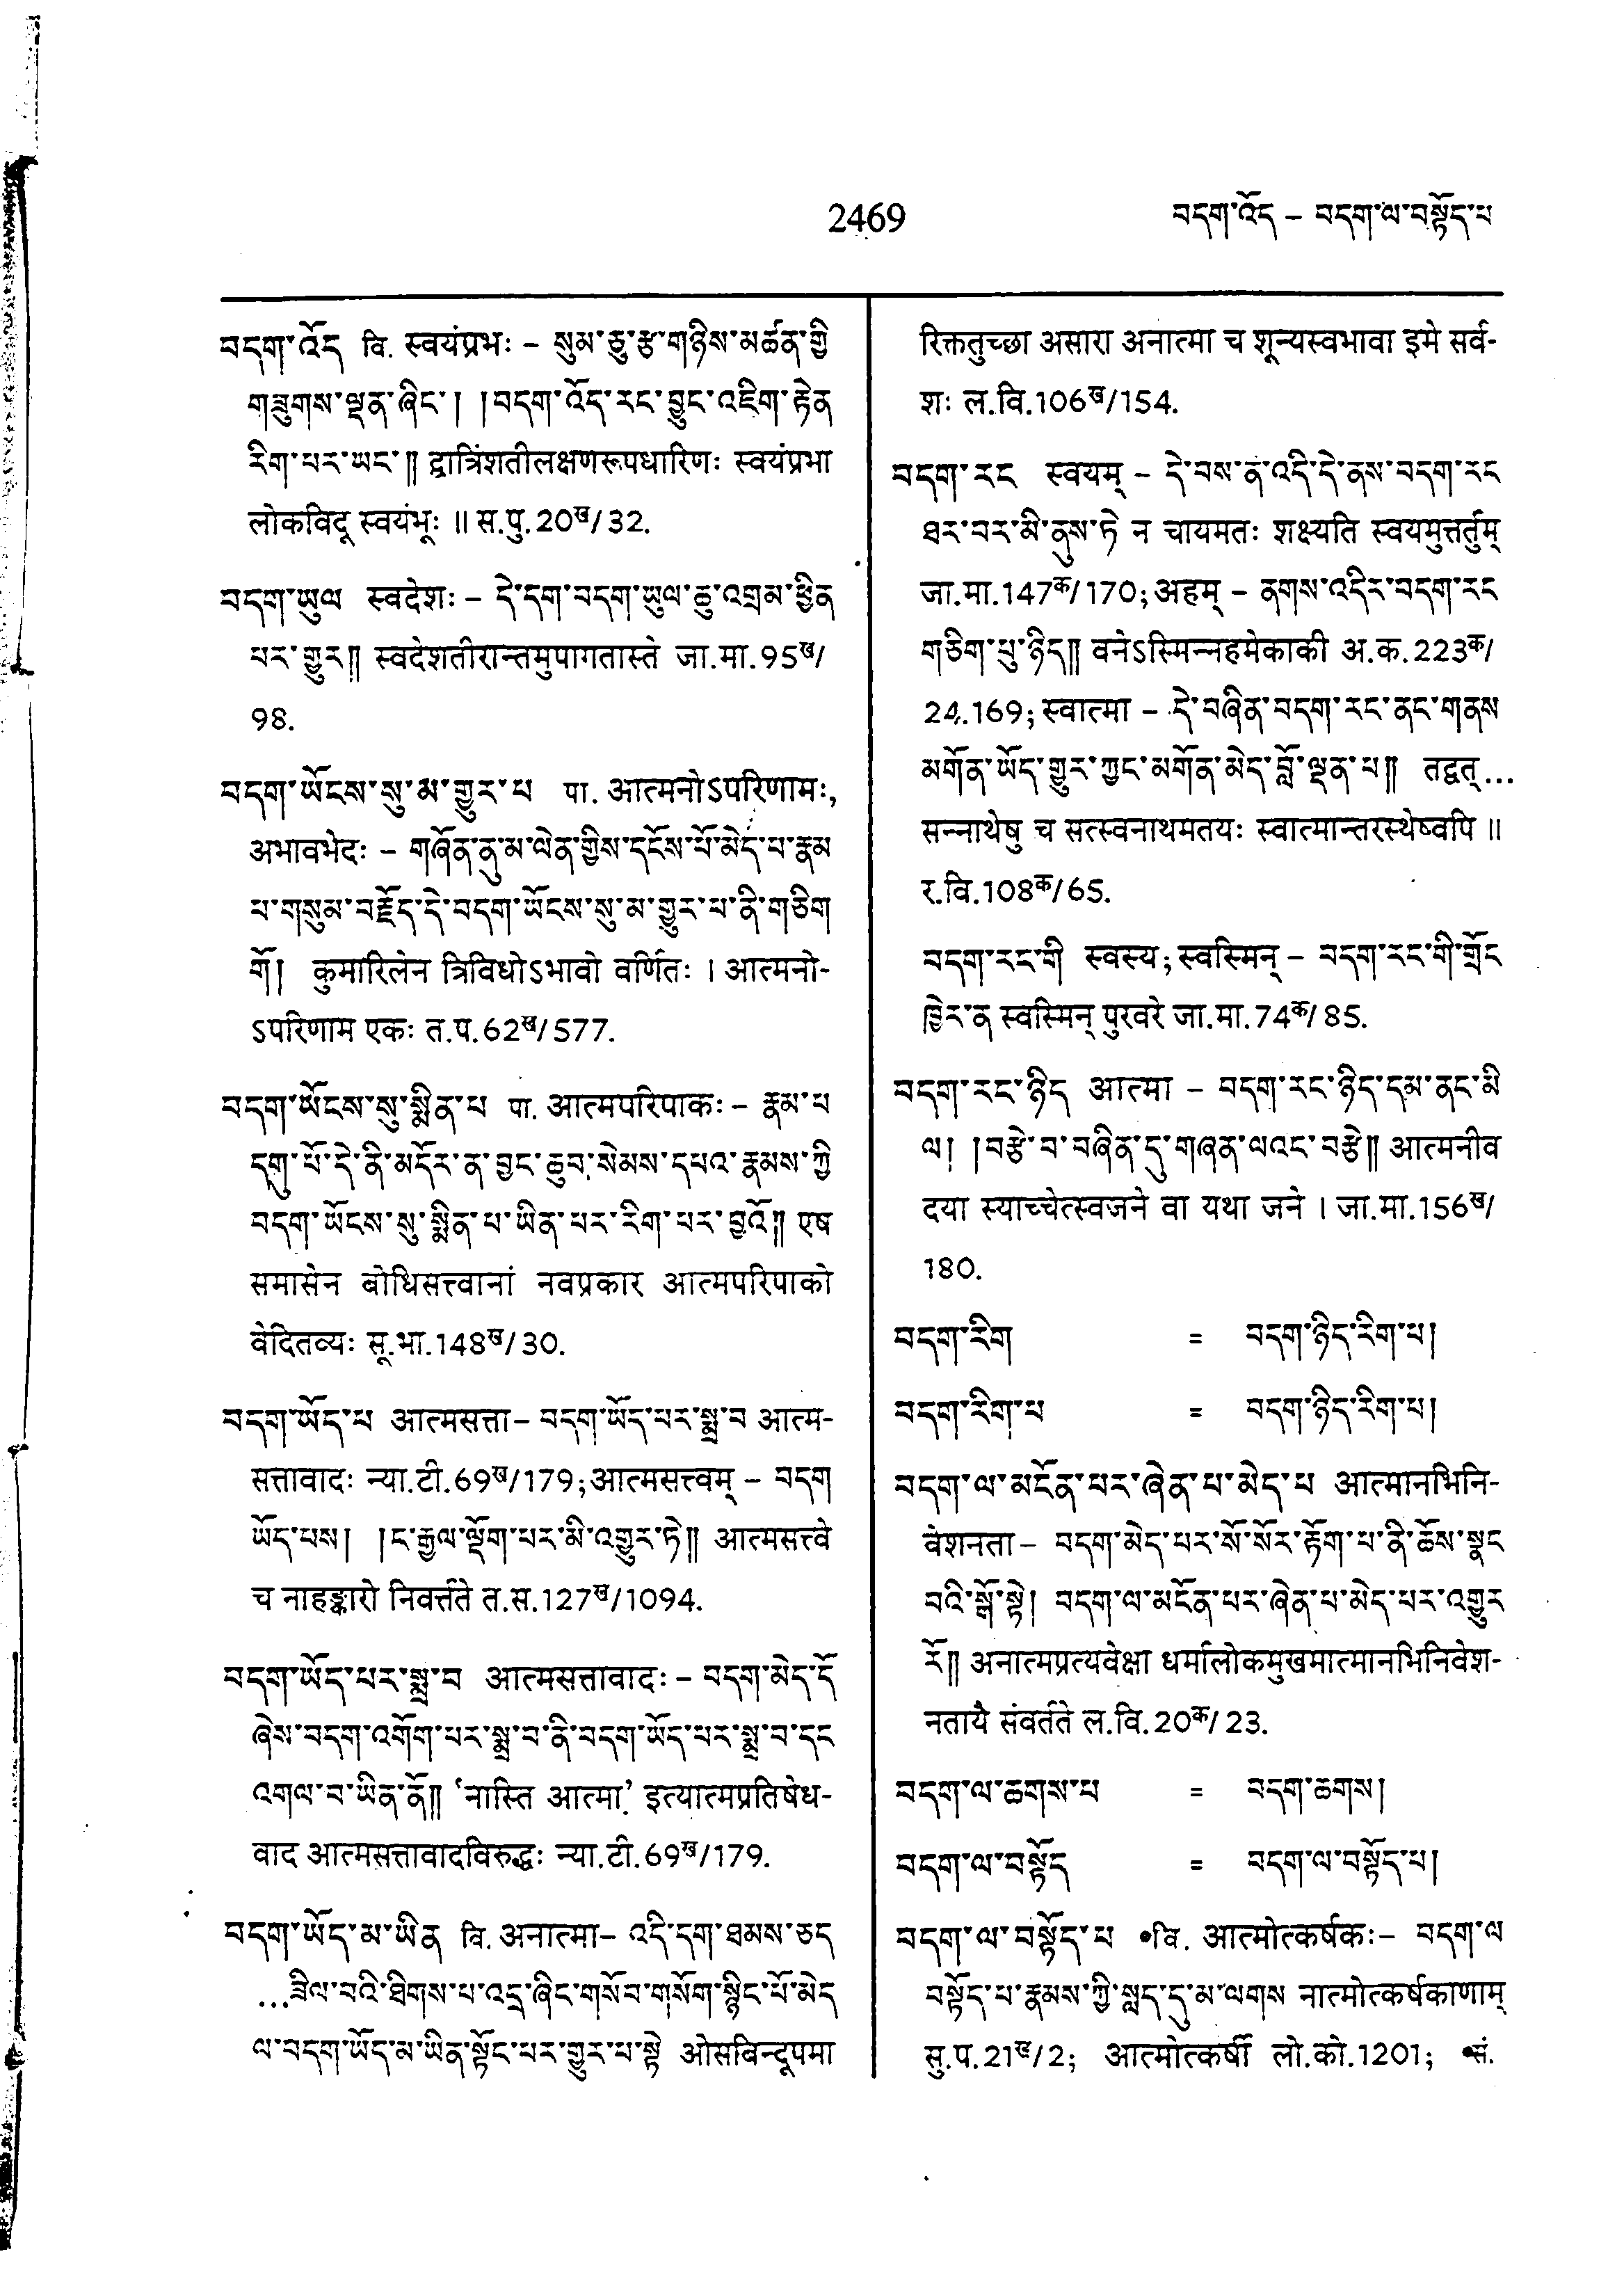 2469
བདག་འོད – བདག་ལ་བསྟོད་པ
བདག་འོད वि. स्वयंप्रभः – སུམ་ཅུ་རྩ་གཉིས་མཚན་གྱི
གཟུགས་ལྡན་ཞིང་། །བདག་འོད་རང་བྱུང་འཇིག་རྟེན
རིག་པར་ཡང་༎ द्वात्रिंशतीलक्षणरूपधारिणः स्वयंप्रभा
लोकविदू स्वयंभूः ॥ स.पु.20ख/32.
བདག་ཡུལ स्वदेशः – དེ་དག་བདག་ཡུལ་ཆུ་འགྲམ་ཕྱིན
པར་གྱུར༎ स्वदेशतीरान्तमुपागतास्ते जा.मा.95ख/
98.
བདག་ཡོངས་སུ་མ་གྱུར་པ पा. आत्मनोऽपरिणामः,
अभावभेदः – གཞོན་ནུ་མ་ལེན་གྱིས་དངོས་པོ་མེད་པ་རྣམ
པ་གསུམ་བརྗོད་དེ་བདག་ཡོངས་སུ་མ་གྱུར་པ་ནི་གཅིག
གོ། कुमारिलेन त्रिविधोऽभावो वर्णितः । आत्मनो-
ऽपरिणाम एकः त.प.62ख/577.
བདག་ཡོངས་སུ་སྨིན་པ पा. आत्मपरिपाकः – རྣམ་པ
དགུ་པོ་དེ་ནི་མདོར་ན་བྱང་ཆུབ་སེམས་དཔའ་རྣམས་ཀྱི
བདག་ཡོངས་སུ་སྨིན་པ་ཡིན་པར་རིག་པར་བྱའོ༎ एष
समासेन बोधिसत्त्वानां नवप्रकार आत्मपरिपाको
वेदितव्यः सू.भा.148ख/30.
བདག་ཡོད་པ आत्मसत्ता – བདག་ཡོད་པར་སྨྲ་བ आत्म-
सत्तावादः न्या.टी.69ख/179; आत्मसत्त्वम् – བདག
ཡོད་པས། །ང་རྒྱལ་ལྡོག་པར་མི་འགྱུར་ཏེ༎ आत्मसत्त्वे
च नाहङ्कारो निवर्त्तते त.स.127ख/1094.
བདག་ཡོད་པར་སྨྲ་བ आत्मसत्तावादः – བདག་མེད་དོ
ཞེས་བདག་འགོག་པར་སྨྲ་བ་ནི་བདག་ཡོད་པར་སྨྲ་བ་དང
འགལ་བ་ཡིན་ནོ༎ ‘नास्ति आत्मा’ इत्यात्मप्रतिषेध-
वाद आत्मसत्तावादविरुद्धः न्या.टी.69ख/179.
བདག་ཡོད་མ་ཡིན वि. अनात्मा – འདི་དག་ཐམས་ཅད
...ཟིལ་བའི་ཐིགས་པ་འདྲ་ཞིང་གསོབ་གསོག་སྙིང་པོ་མེད
ལ་བདག་ཡོད་མ་ཡིན་སྟོང་པར་གྱུར་པ་སྟེ ओसबिन्दूपमा
रिक्ततुच्छा असारा अनात्मा च शून्यस्वभावा इमे सर्व-
शः ल.वि.106ख/154.
བདག་རང स्वयम् – དེ་བས་ན་འདི་དེ་ནས་བདག་རང
ཐར་བར་མི་ནུས་ཏེ न चायमतः शक्ष्यति स्वयमुत्तर्तुम्
जा.मा.147क/170; अहम् – ནགས་འདིར་བདག་རང
གཅིག་པུ་ཉིད༎ वनेऽस्मिन्नहमेकाकी अ.क.223क/
24.169; स्वात्मा – དེ་བཞིན་བདག་རང་ནང་གནས
མགོན་ཡོད་གྱུར་ཀྱང་མགོན་མེད་བློ་ལྡན་པ༎ तद्वत्...
सन्नाथेषु च सत्स्वनाथमतयः स्वात्मान्तरस्थेष्वपि ॥
र.वि.108क/65.
བདག་རང་གི स्वस्य; स्वस्मिन् – བདག་རང་གི་གྲོང
ཁྱེར་ན स्वस्मिन् पुरवरे जा.मा.74क/85.
བདག་རང་ཉིད आत्मा – བདག་རང་ཉིད་དམ་ནང་མི
ལ། །བརྩེ་བ་བཞིན་དུ་གཞན་ལའང་བརྩེ༎ आत्मनीव
दया स्याच्चेत्स्वजने वा यथा जने । जा.मा.156ख/
180.
བདག་རིག = བདག་ཉིད་རིག་པ།
བདག་རིག་པ = བདག་ཉིད་རིག་པ།
བདག་ལ་མངོན་པར་ཞེན་པ་མེད་པ आत्मानभिनि-
वेशनता – བདག་མེད་པར་སོ་སོར་རྟོག་པ་ནི་ཆོས་སྣང
བའི་སྒོ་སྟེ། བདག་ལ་མངོན་པར་ཞེན་པ་མེད་པར་འགྱུར
རོ༎ अनात्मप्रत्यवेक्षा धर्मालोकमुखमात्मानभिनिवेश-
नतायै संवर्तते ल.वि.20क/23.
བདག་ལ་ཆགས་པ = བདག་ཆགས།
བདག་ལ་བསྟོད = བདག་ལ་བསྟོད་པ།
བདག་ལ་བསྟོད་པ •वि. आत्मोत्कर्षकः – བདག་ལ
བསྟོད་པ་རྣམས་ཀྱི་སླད་དུ་མ་ལགས नात्मोत्कर्षकाणाम्
सु.प.21ख/2; आत्मोत्कर्षी लो.को.1201; •सं.